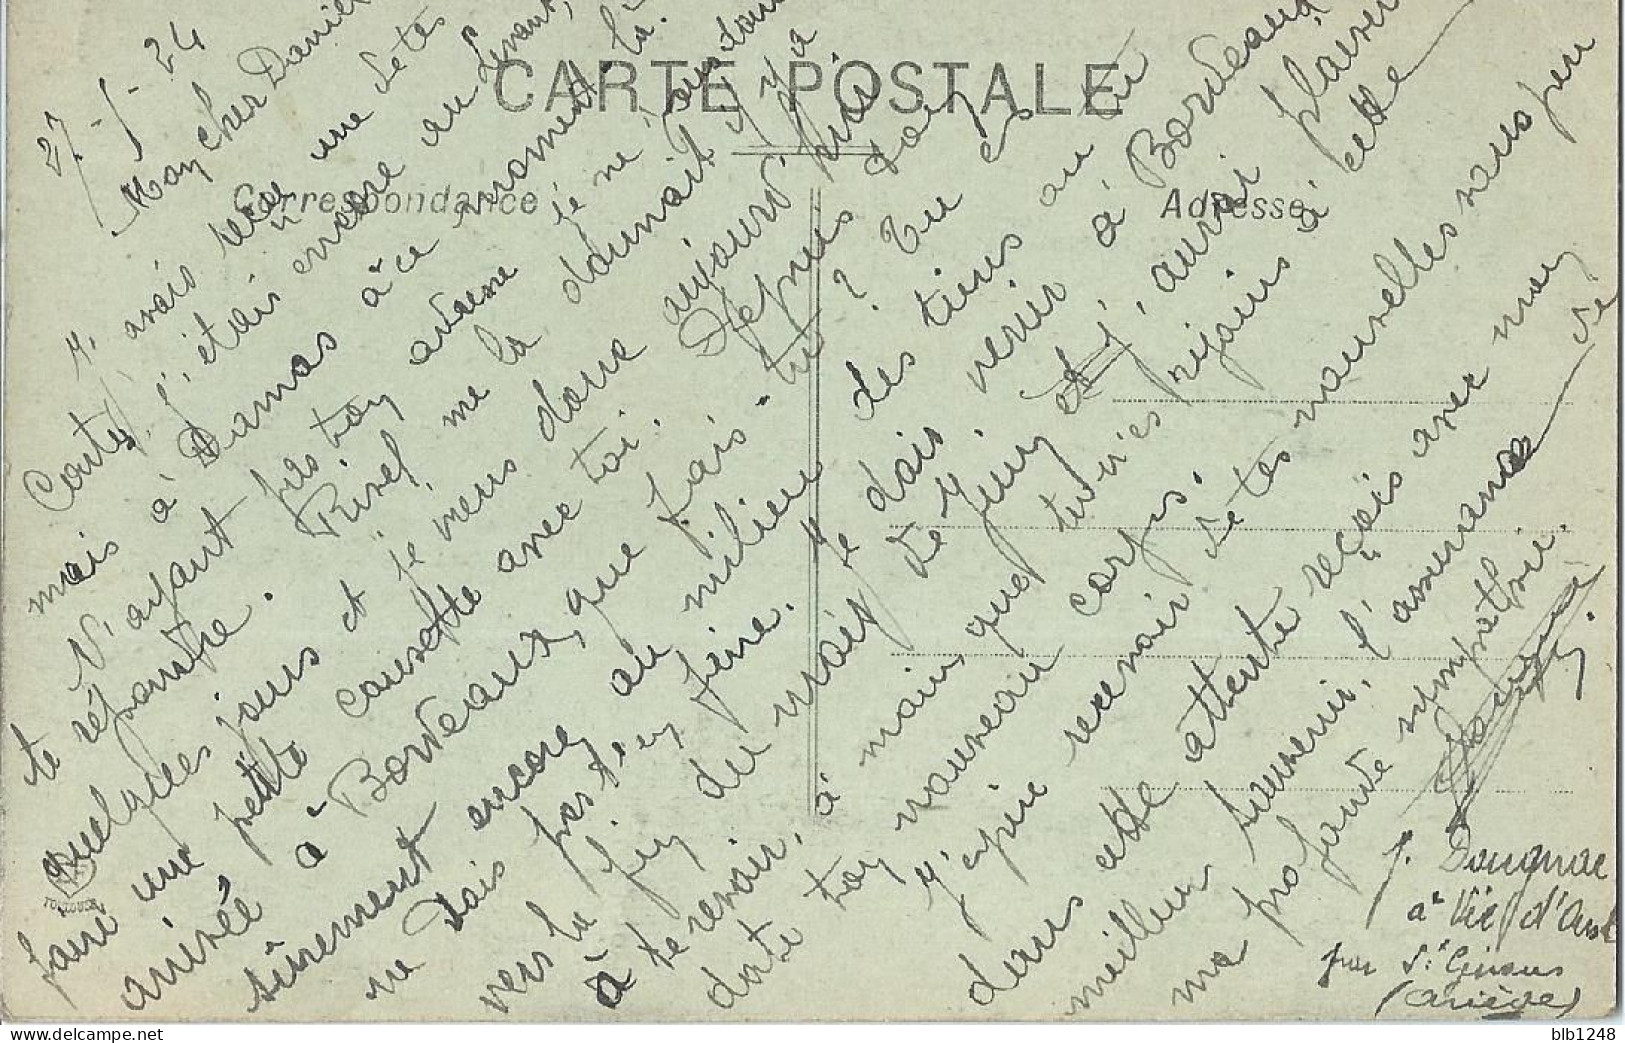 CARTE POSTALE
Correspondance
Adresse
27-5-24
Mon cher Daniel
J'avais reçu une de tes
Cartes, j'étais encore au Levant,
mais à Damas à ce moment là.
N'ayant pas ton adresse je ne pus donc
te répondre. Rivel me la donnait il y a
quelques jours et je viens donc aujourd'hui
faire une petite causette avec toi. Depuis ton
arrivée à Bordeaux, que fais-tu? Tu es
sûrement encore au milieu des tiens ou tu
ne dois pas t'en faire. Je dois venir à Bordeaux
vers la fin du mois de Juin et j'aurai plaisir
à te revoir, à moins que tu n'es rejoins à cette
date ton nouveau corps.
J'espère recevoir de tes nouvelles sous peu
dans cette attente reçois avec mon
meilleur souvenir, l'assurance de
ma profonde sympathie.
J. Dougnac
à Vic d'Oust
par St Girons
(Ariège)
blb1248